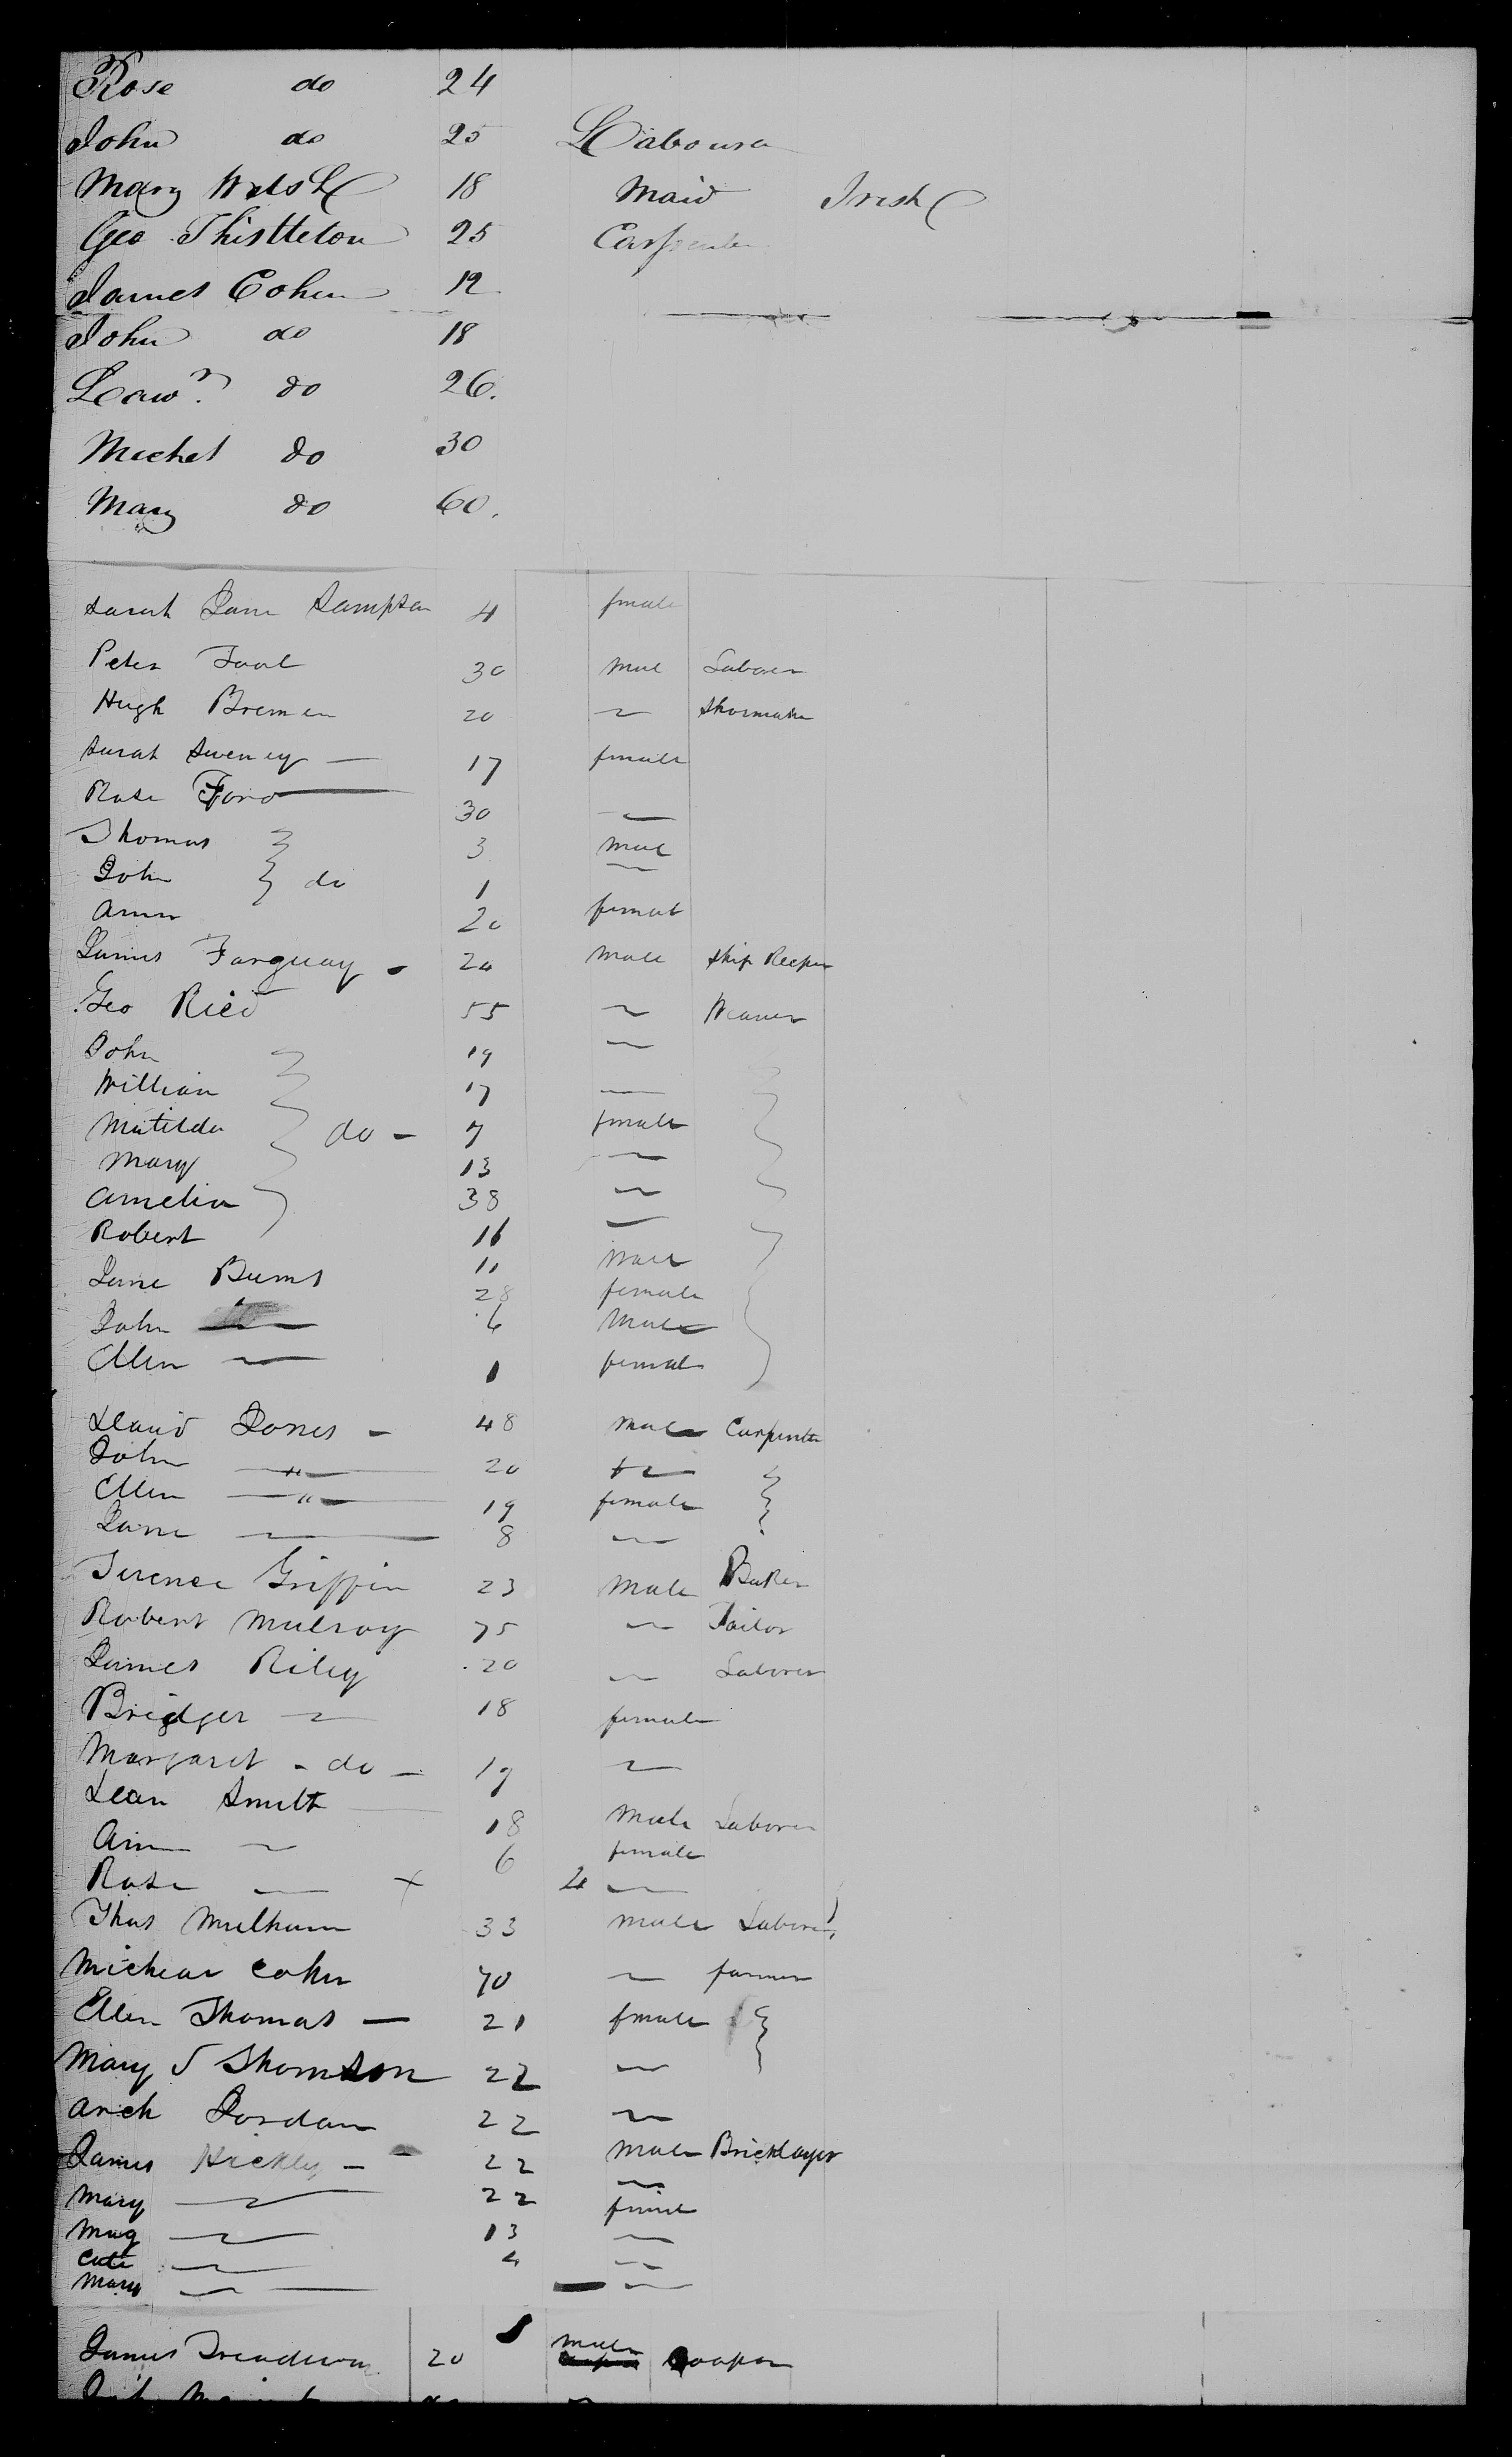 Rose do 24
John do 25 Laboure
Mary Welsh 18 Maid Irish
Geo Thistleton 25 Carpenter
James Cohen 12
John do 18
Lawr. do 26.
Michel do 30
Mary do 60.
Sarah Jane Sampson 4 female
Peter Toole 30 Male Laborer
Hugh Bremen 20 ~ Shoemaker
Sarah Sweney — 17 female
Rose Ford 30 ~
Thomas 3 Male
John } do 1 ~
Ann 20 female
James Farguay - 24 Male Ship Keeper
Geo Ried 55 ~ Weaver
John 19 ~
William 17 ~
Matilda } do - 7 female
Mary 13 ~
Amelia 38 ~
Robert 16 ~
11 Male
Jane Burns 28 female
John — 6 Male
Ellen — 1 female
David Jones - 48 Male Carpenter
John — " — 20 ~
Ellen — " — 19 female
Jane — 8 ~
Terence Griffin 23 Male Baker
Robert Mulroy 75 ~ Tailor
James Riley 20 ~ Laborer
Bridget ~ 18 female
Margaret - do - 19 ~
Dean Smith 18 Male Laborer
Ann ~ 6 female
Rose — x 4 ~
Thos Mulhum 33 Male Laborer
Michear Coher 70 ~ farmer
Ellen Thomas — 21 female
Mary J Thomson 22 ~
Arch Jordan 22 ~
James Hickley - 22 Male Bricklayer
Mary — 22 female
Mag — 13 ~
Cate — 4 ~
Mary — ~
James Treadway 20 Male Cooper